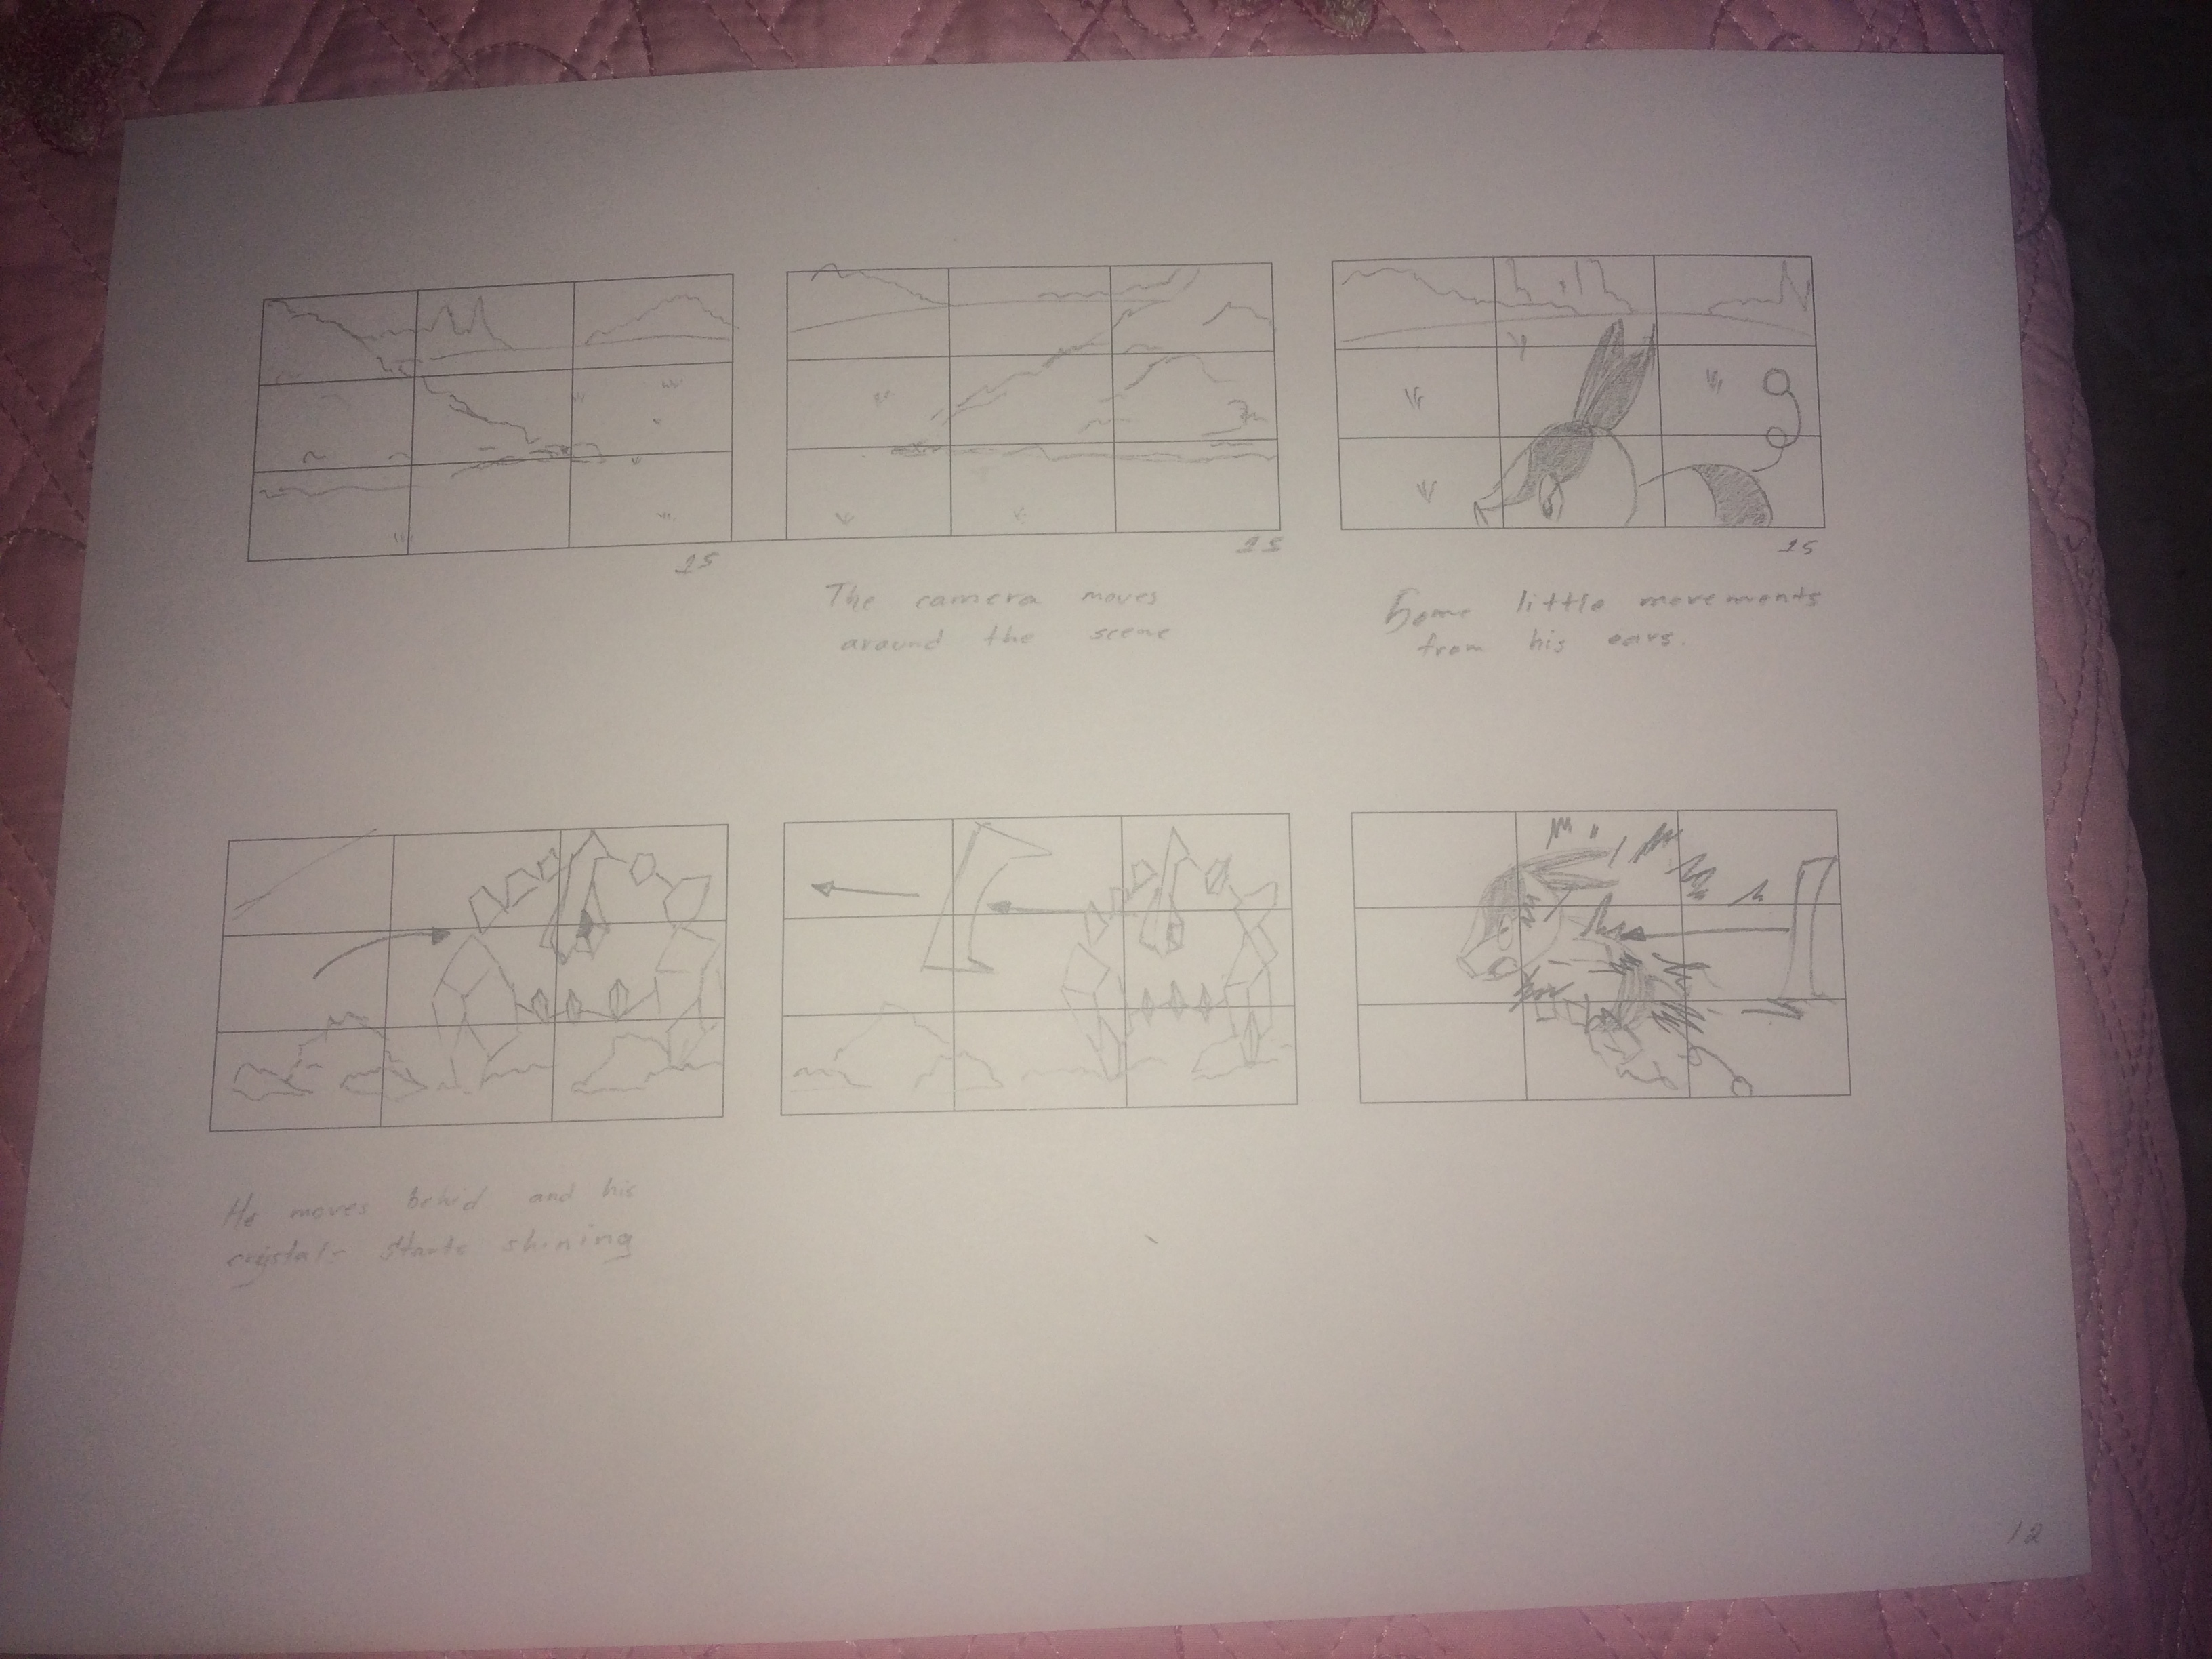 15
15
15
The camera moves
around the scene
Some little movements
from his ears.
He moves behid and his
crystals starts shining
12